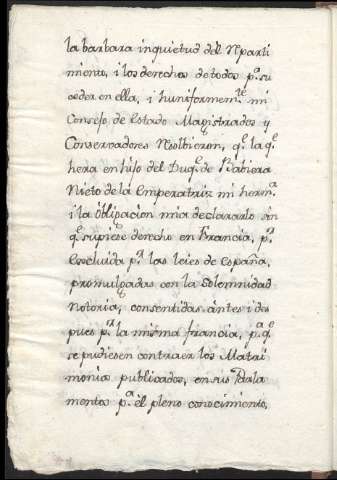 la barbara inquietud del Rparti
miento, i los derechos de todos p.ª su
ceder en ella, i huniformem.te mi
Consejo de Estado Magistrados y
Conservadores Rsolbieron, q.e la q.e
hera en hijo del Duq.e de Babiera
Nieto de la Emperatriz mi herm.ª
i la obligacion mia declararlo sin
q.e supiese derecho en Francia, p.r
Escluida p.r las leies de España,
promulgadas con la solemnidad
notoria, consentidas antes i des
pues p.r la misma francia, p.ª q.e
se pudiesen contraer los Matri
monios publicados, en sus Parla
mentos p.ª el pleno conocimiento,